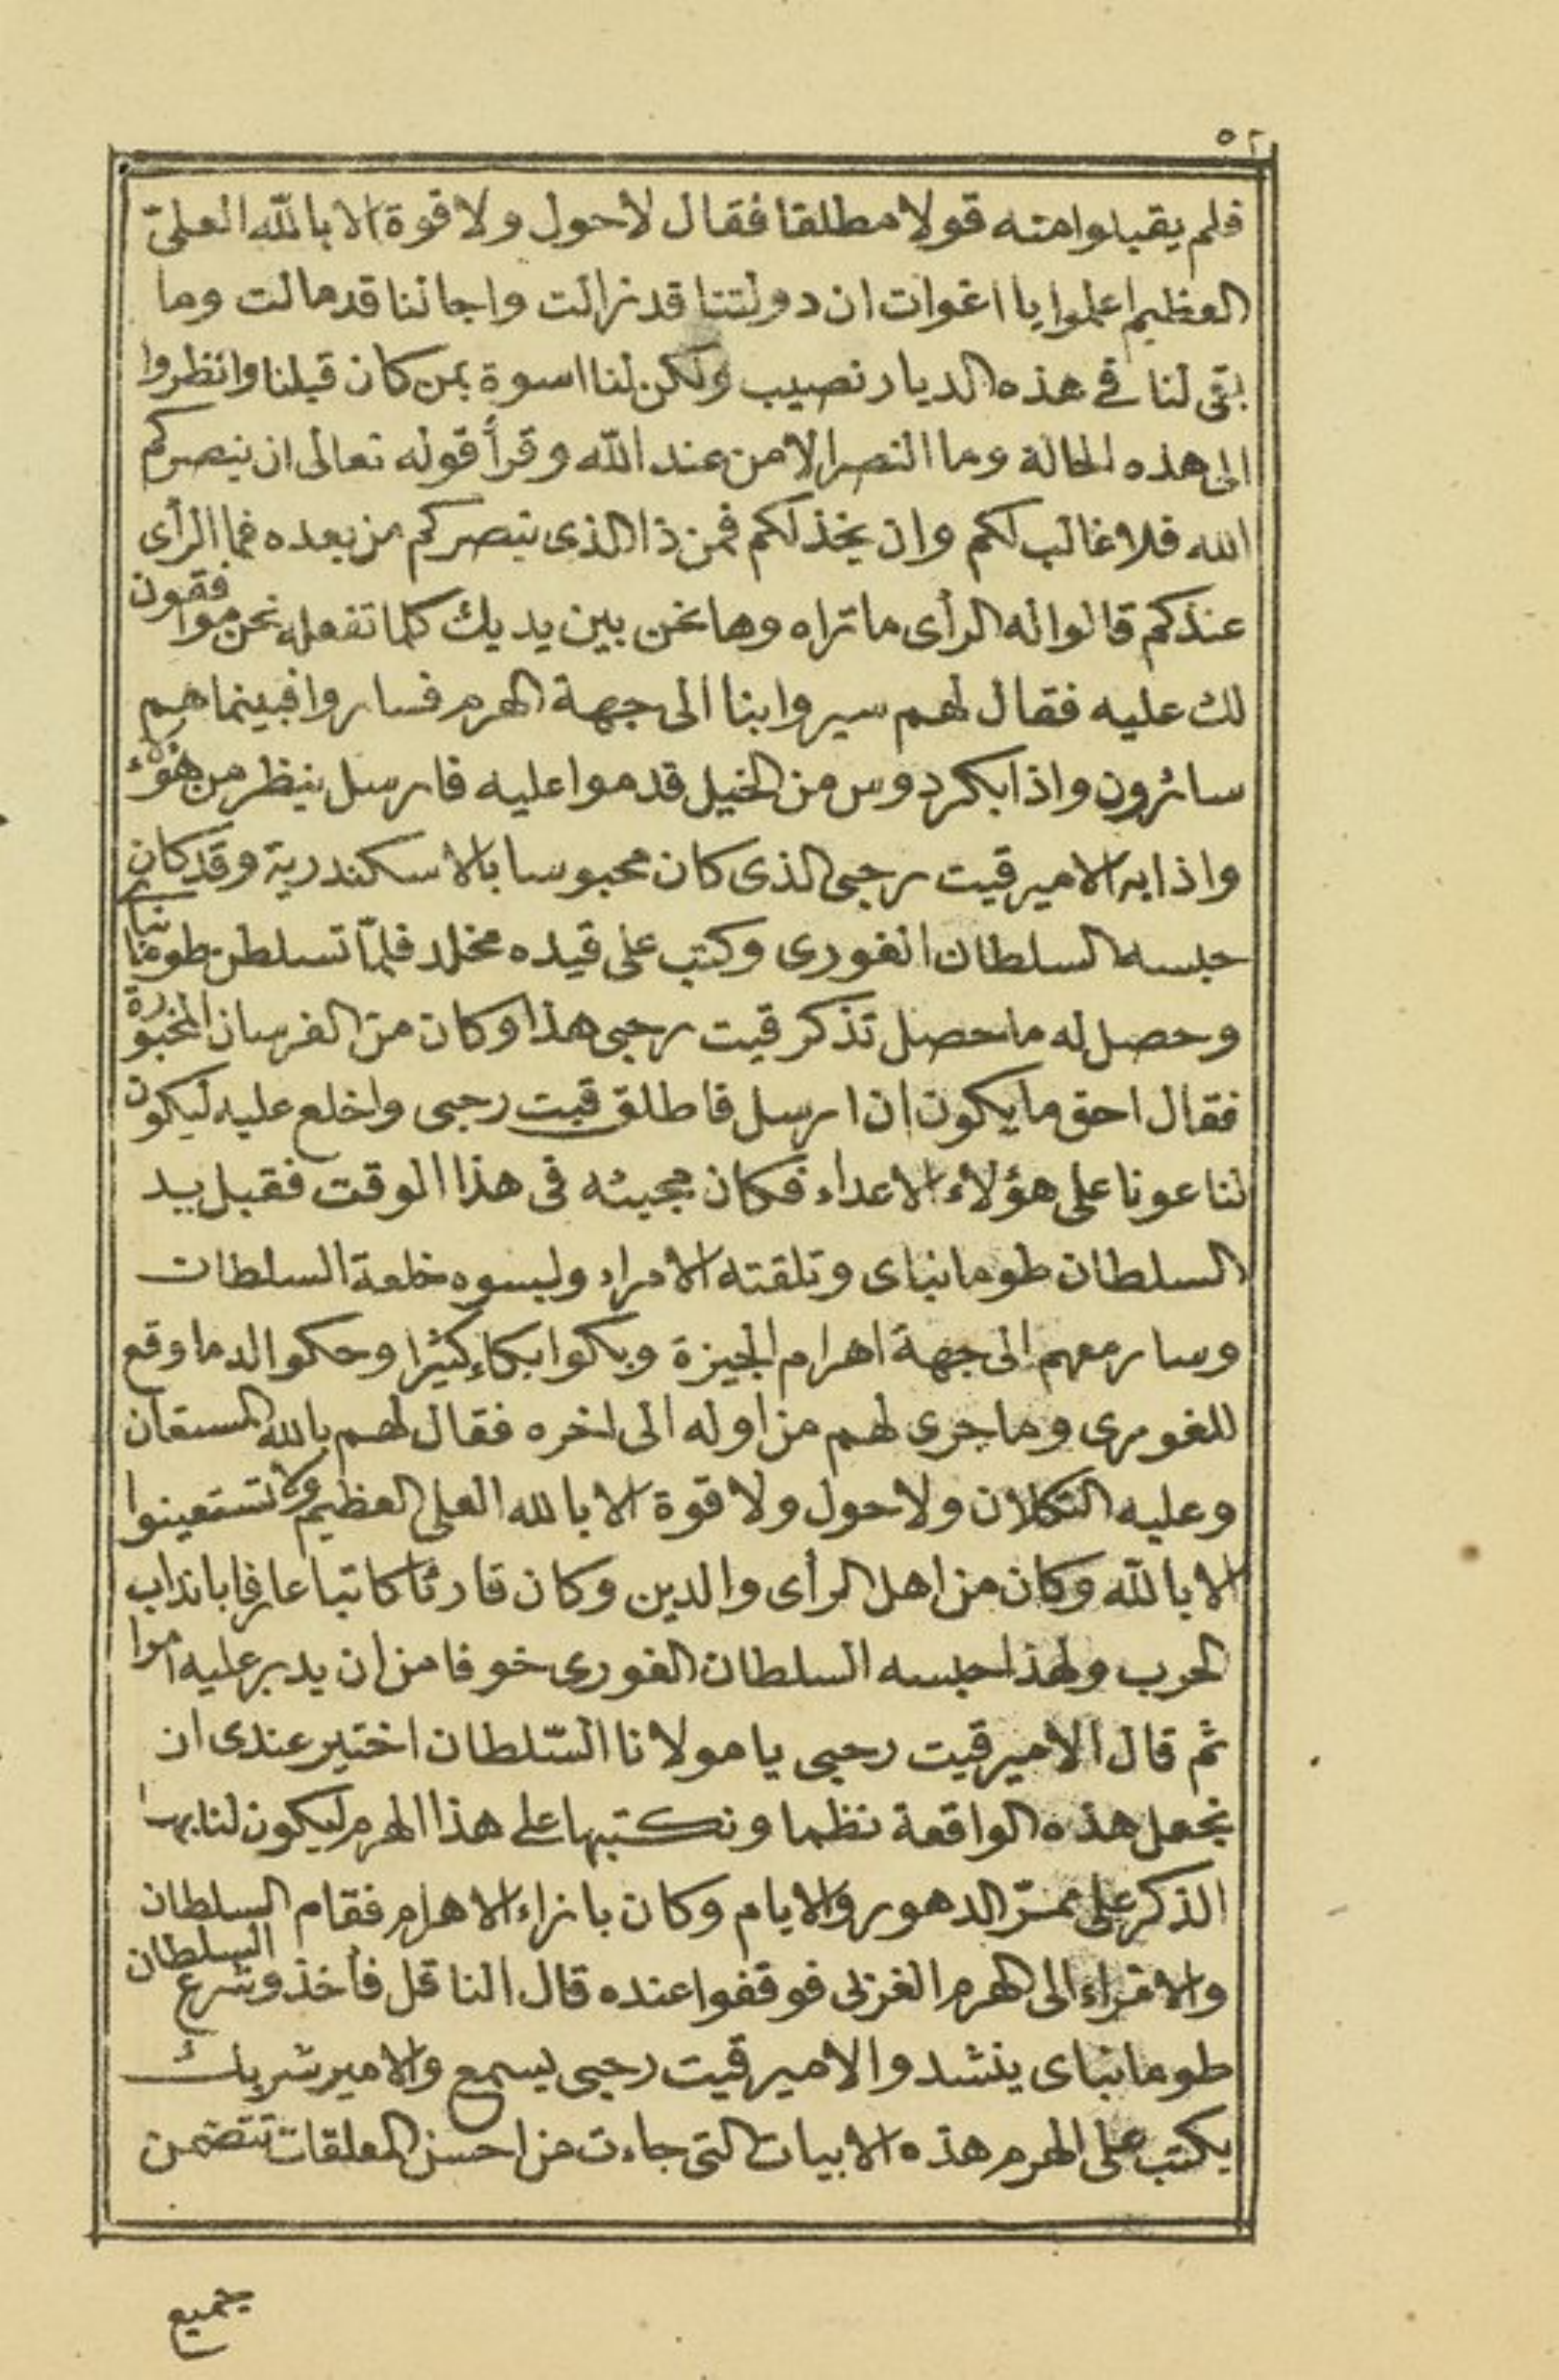 ٥٢
فلم يقبلوا منه قولا مطلقا فقال لاحول ولا قوة الا بالله العلىّ
العظيم اعلموا يا اغوات ان دولتنا قد زالت واجالنا قد مالت وما
بقى لنا فى هذه الديار نصيب ولكن لنا اسوة بمن كان قبلنا وانظروا
الى هذه الحالة وما النصر الا من عند الله وقرأ قوله تعالى ان ينصركم
الله فلا غالب لكم وان يخذلكم فمن ذا الذى ينصركم من بعده فما الرأى
عندكم قالوا له الرأى ما تراه وها نحن بين يديك كلما تفعله نحن موافقون
لك عليه فقال لهم سيروا بنا الى جهة الهرم فساروا فبينما هم
سائرون واذا بكردوس من الخيل قدموا عليه فارسل ينظر من هؤلاء
واذا به الامير قيت رحبى الذى كان محبوسا بالاسكندرية وقد كان
حبسه السلطان الغورى وكتب على قيده مخلد فلمّا تسلطن طومانباى
وحصل له ما حصل تذكر قيت رحبى هذا وكان من الفرسان المخبورة
فقال احق ما يكون ان ارسل فاطلق قيت رحبى واخلع عليه ليكون
لنا عونا على هؤلاء الاعداء فكان مجيئه فى هذا الوقت فقبل يد
السلطان طومانباى وتلقته الامراء ولبسوه خلعة السلطان
وسار معهم الى جهة اهرام الجيزة وبكوا بكاء كثيرا وحكوا له ما وقع
للغورى وما جرى لهم من اوله الى اخره فقال لهم بالله المستعان
وعليه التكلان ولا حول ولا قوة الا بالله العلى العظيم ولا تستعينوا
الا بالله وكان من اهل الرأى والدين وكان قارئا كاتبا عارفا باداب
الحرب ولهذا حبسه السلطان الغورى خوفا من ان يدبر عليه امرا
ثم قال الامير قيت رحبى يا مولانا السّلطان اختير عندى ان
نجعل هذه الواقعة نظما ونكتبها على هذا الهرم ليكون لنا بها
الذكر على ممرّ الدهور والايام وكان بازاء الاهرام فقام السلطان
والامراء الى الهرم الغربى فوقفوا عنده قال الناقل فأخذ وشرع السلطان
طومانباى ينشد والامير قيت رحبى يسمع والامير شربك
يكتب على الهرم هذه الابيات التى جاءت من احسن المعلقات تتضمن
جميع